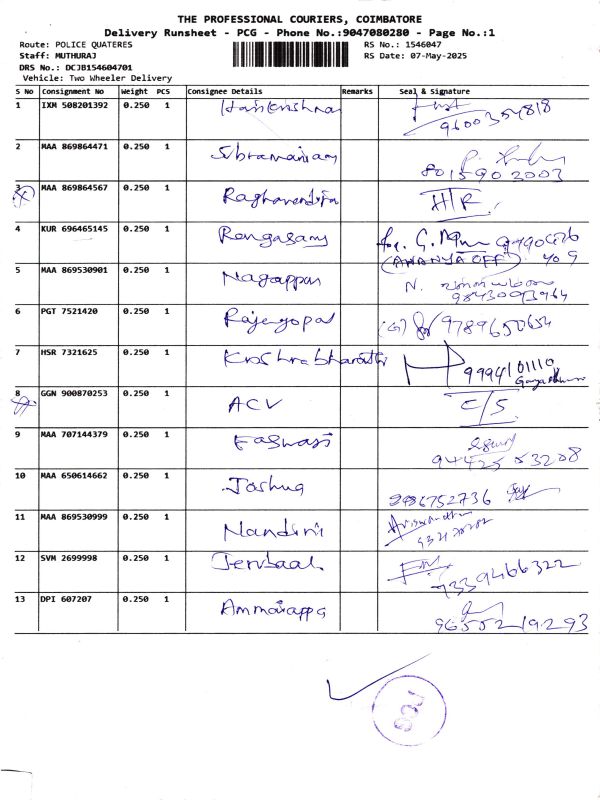 THE PROFESSIONAL COURIERS, COIMBATORE
Delivery Runsheet - PCG - Phone No.:9047080280 - Page No.:1
Route: POLICE QUATERES RS No.: 1546047
Staff: MUTHURAJ RS Date: 07-May-2025
DRS No.: DCJB154604701
Vehicle: Two Wheeler Delivery
S No Consignment No Weight PCS Consignee Details Remarks Seal & Signature
1 IXM 508201392 0.250 1 Harikrishnan
9600354818
2 MAA 869864471 0.250 1 Sibramaniam
8015902003
3 MAA 869864567 0.250 1 Raghavendra H/R
4 KUR 696465145 0.250 1 Rengasamy
(ANANYA OFF)
5 MAA 869530901 0.250 1 Nagappan N.
98430093964
6 PGT 7521420 0.250 1 Rajengopal (G) 9789650654
7 HSR 7321625 0.250 1 Krishrabharathi
9994101110
8 GGN 900870253 0.250 1 ACV C/S
9 MAA 707144379 0.250 1 Easwari
94425 53208
10 MAA 650614662 0.250 1 Joshua
9486752736
11 MAA 869530999 0.250 1 Nandini
12 SVM 2699998 0.250 1 Jerubaal
9339466322
13 DPI 607207 0.250 1 Ammaiappa
96552 19293
DCJ